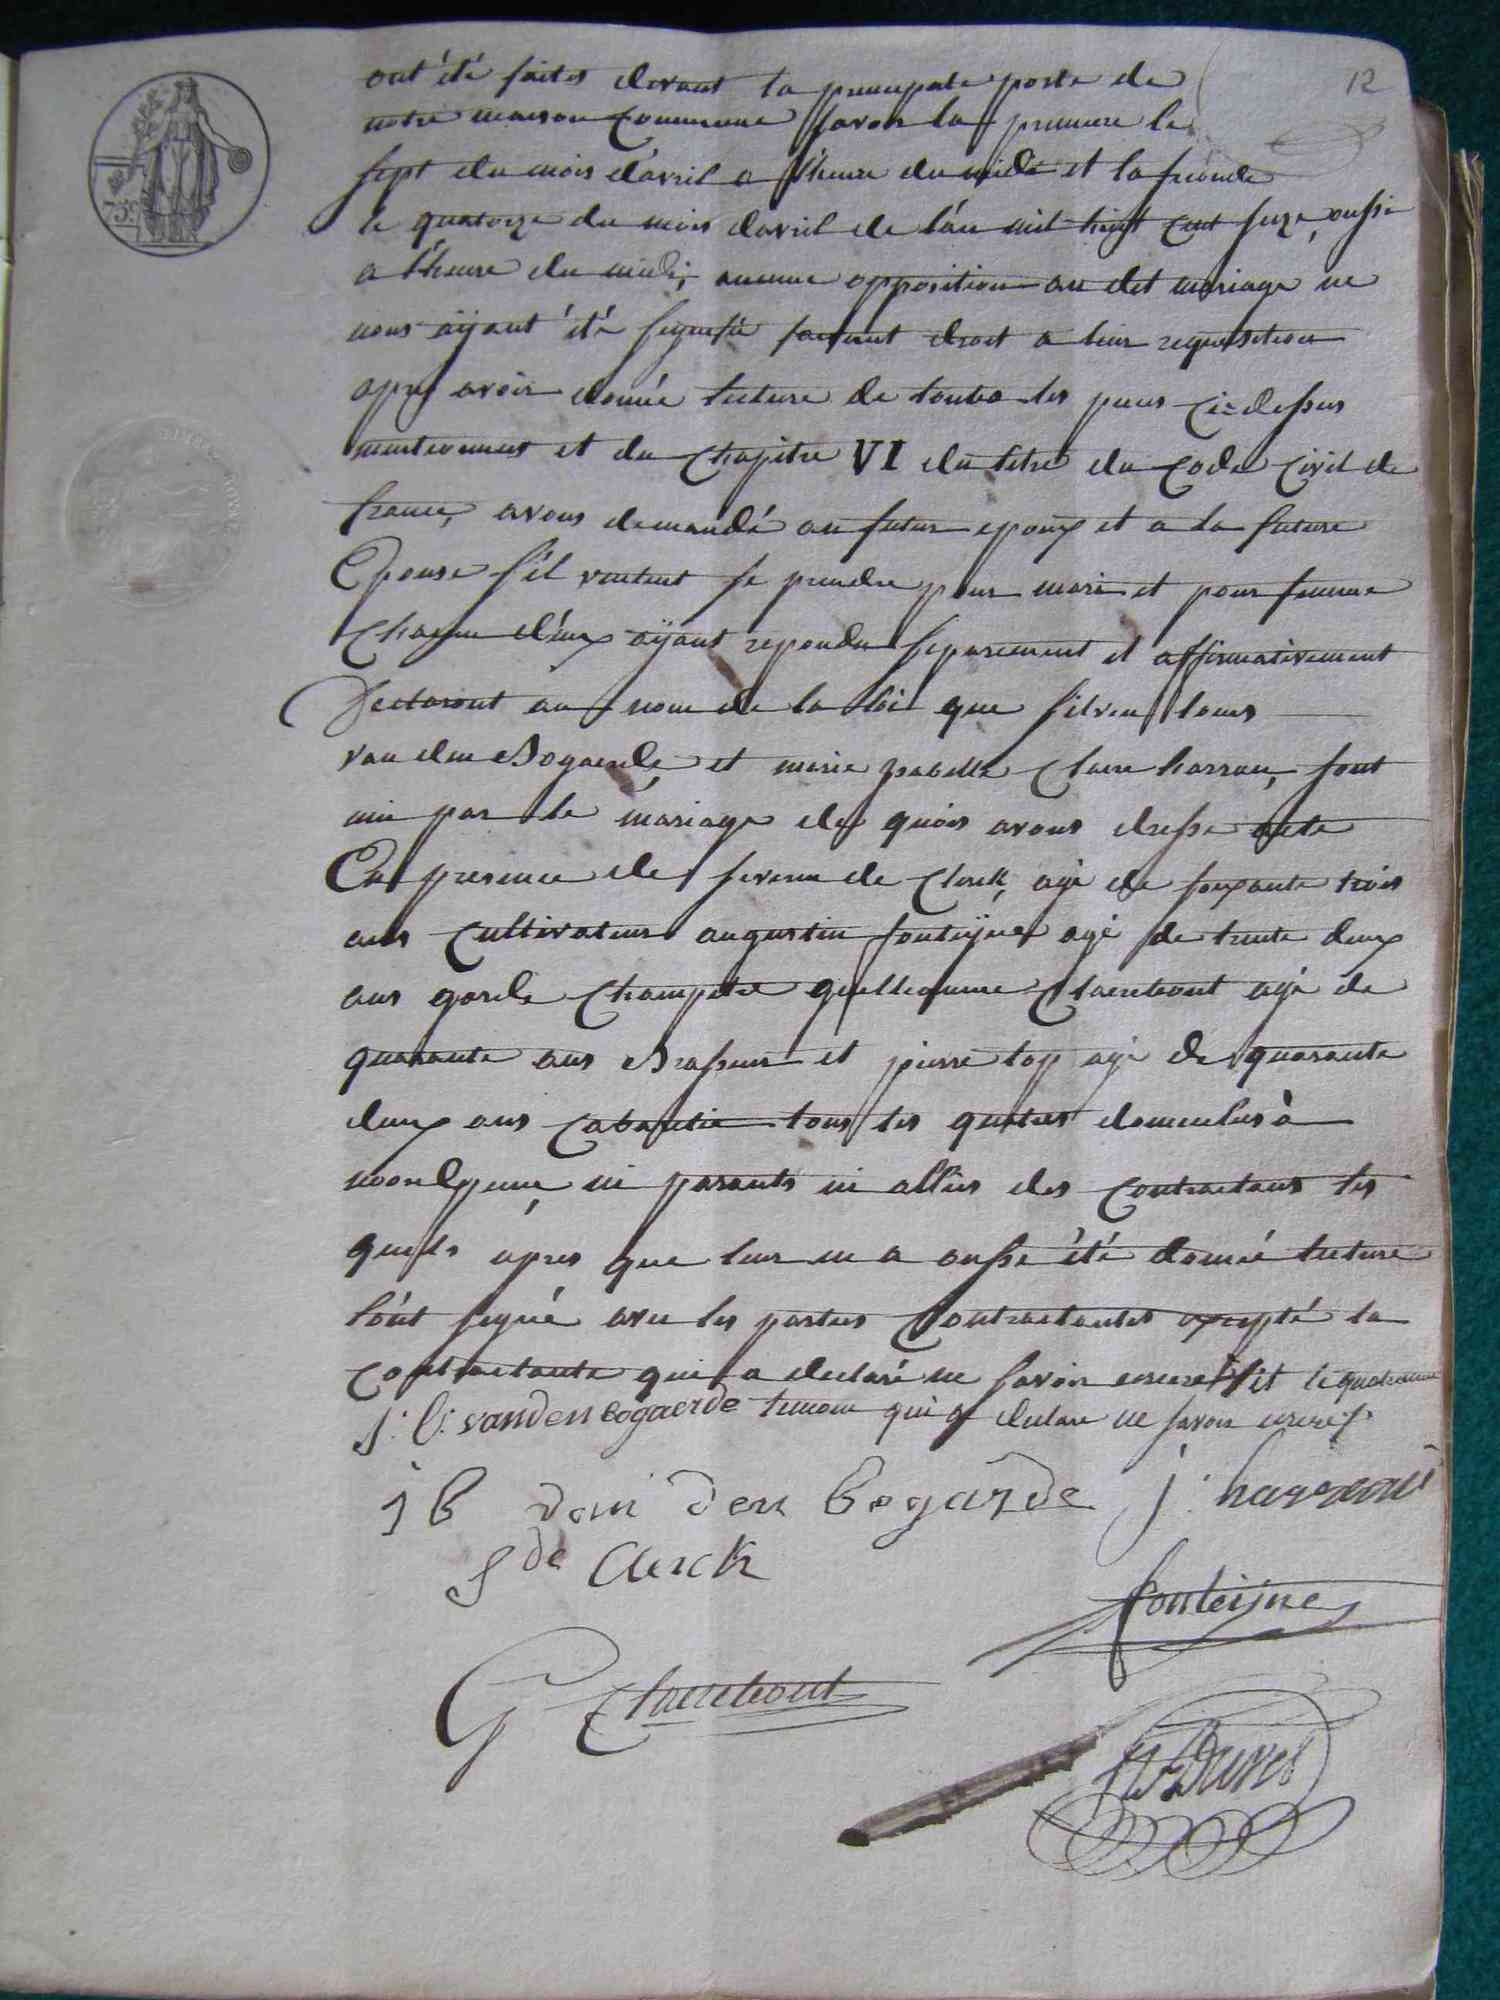 12
ont été faites devant la principale porte de
notre maison Commune savoir la premiere le
sept du mois d'avril a l'heure du midi et la seconde
le quatorze du mois d'avril de l'an mil huit cent seize, aussi
a l'heure du midi, aucune opposition au dit mariage ne
nous aÿant été signifié faisant droit a leur requisition
apres avoir donné lecture de toutes les pieces Ci=dessus
mentionnees et du Chapitre VI du titre du Code Civil de
france, avons demandé au futur epoux et a la future
Epouse s'il veulent se prendre pour mari et pour femme
Chacun d'eux aÿant repondu separement et affirmativement
Declarant au nom de la loi que silven louis
van den Bogaerde, et marie isabelle Claire harrau, sont
uni par le mariage de quoi avons dresse acte
En presence de severin de Clerck, agé de soixante trois
ans Cultivateur augustin fonteÿne agé de trente deux
ans garde Champetre guilleaume Claerebout agé de
quarante ans Brasseur et pierre top agé de quarante
deux ans Cabaretié tous les quatres domicilies à
noordpeene, ni parants ni alliés des Contractans les
quels après que leur en a aussi été donné lecture
l'ont signé avec les parties Contractantes excepté la
Contractante qui a declaré ne savoir ecrire et le quatrieme
temoin qui a declare ne savoir ecrire
S: L: vanden bogaerde
J B van den bogaerde
J: harrau
S de Clerck
fonteijne
G Claerebout